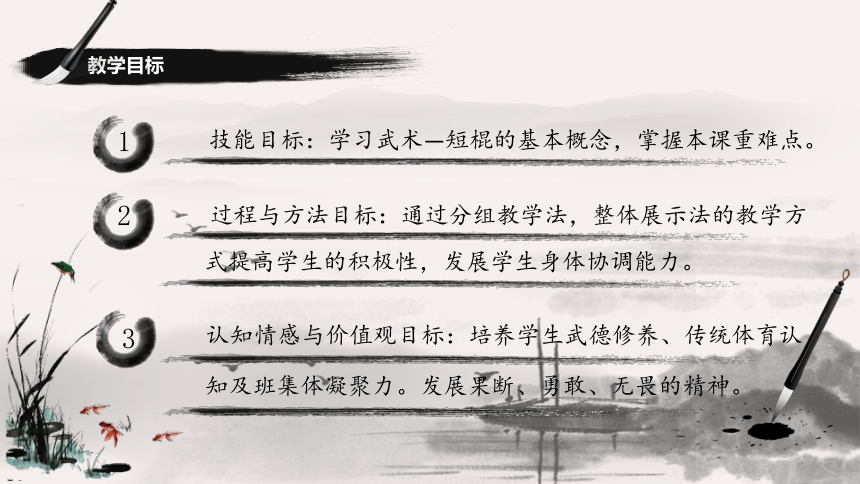 教学目标
1
技能目标：学习武术—短棍的基本概念，掌握本课重难点。
2
过程与方法目标：通过分组教学法，整体展示法的教学方
式提高学生的积极性，发展学生身体协调能力。
3
认知情感与价值观目标：培养学生武德修养、传统体育认
知及班集体凝聚力。发展果断、勇敢、无畏的精神。